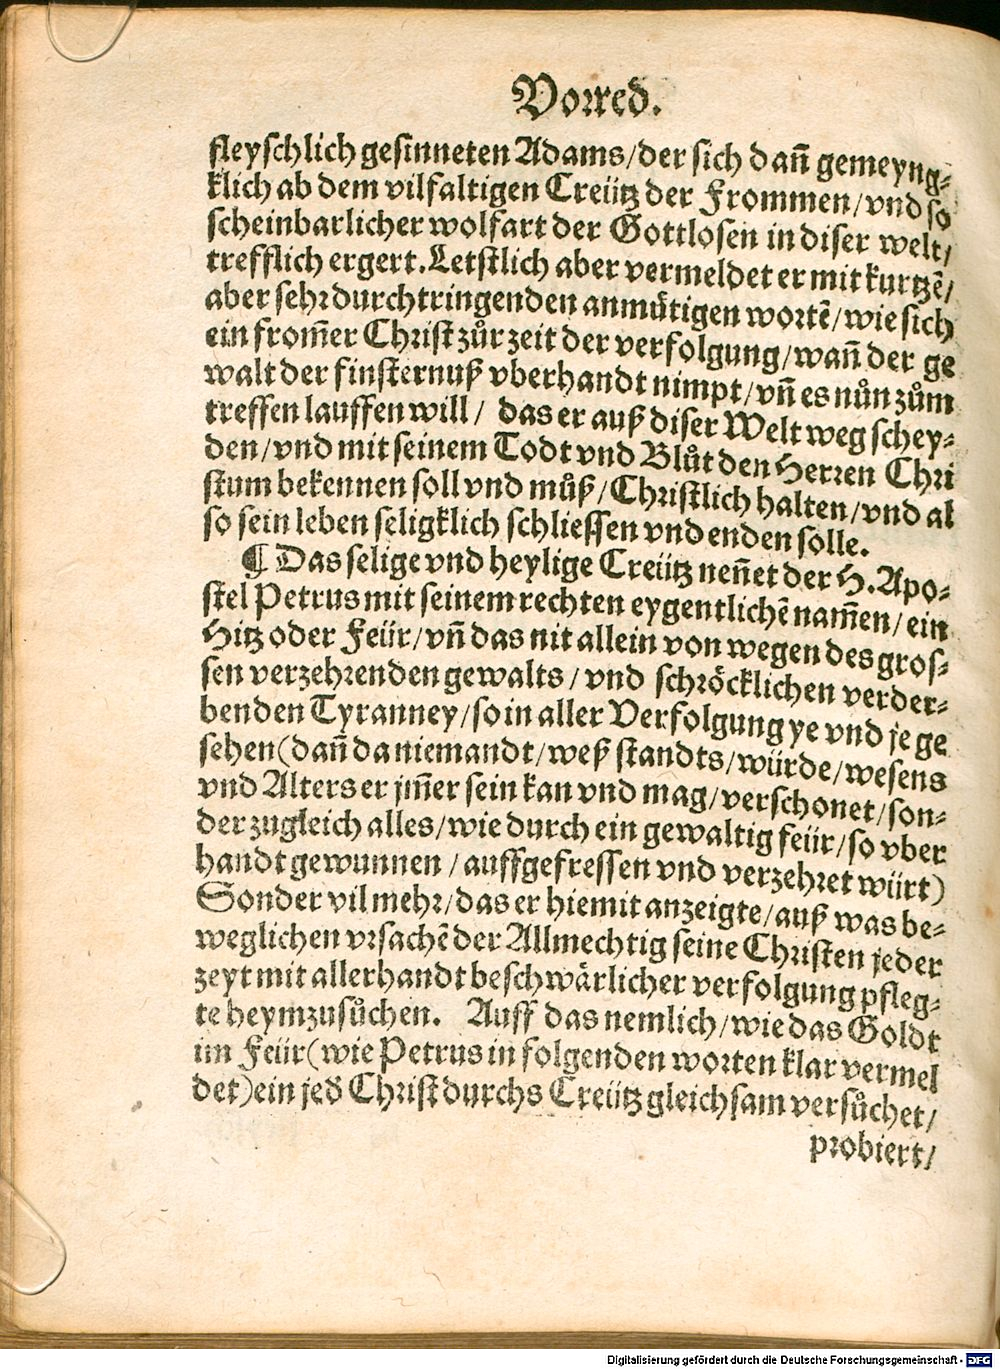 Vorred.
fleyschlich gesinneten Adams/der sich dañ gemeyng-
klich ab dem vilfaltigen Creütz der Frommen/vnd so
scheinbarlicher wolfart der Gottlosen in diser welt/
trefflich ergert. Letstlich aber vermeldet er mit kurtzē/
aber sehr durchtringenden anmůtigen wortē/wie sich
ein from̃er Christ zůr zeit der verfolgung/wañ der ge
walt der finsternuß vberhandt nimpt/vñ es nůn zům
treffen lauffen will/ das er auß diser Welt weg schey-
den/vnd mit seinem Todt vnd Blůt den Herren Chri
stum bekennen soll vnd můß/Christlich halten/vnd al
so sein leben seligklich schliessen vnd enden solle.
¶ Das selige vnd heylige Creütz neñet der H. Apo-
stel Petrus mit seinem rechten eygentlichē nam̃en/ein
Hitz oder Feür/vñ das nit allein von wegen des gros-
sen verzehrenden gewalts/vnd schröcklichen verder-
benden Tyranney/so in aller Verfolgung ye vnd je ge
sehen(dañ da niemandt/weß standts/würde/wesens
vnd Alters er jm̃er sein kan vnd mag/verschonet/son-
der zugleich alles/wie durch ein gewaltig feür/so vber
handt gewunnen/auffgefressen vnd verzehret würt)
Sonder vil mehr/das er hiemit anzeigte/auß was be-
weglichen vrsachē der Allmechtig seine Christen jeder
zeyt mit allerhandt beschwärlicher verfolgung pfleg-
te heymzusůchen. Auff das nemlich/wie das Goldt
im Feür(wie Petrus in folgenden worten klar vermel
det)ein jed̃ Christ durchs Creütz gleichsam versůchet/
probiert/
Digitalisierung gefördert durch die Deutsche Forschungsgemeinschaft - DFG